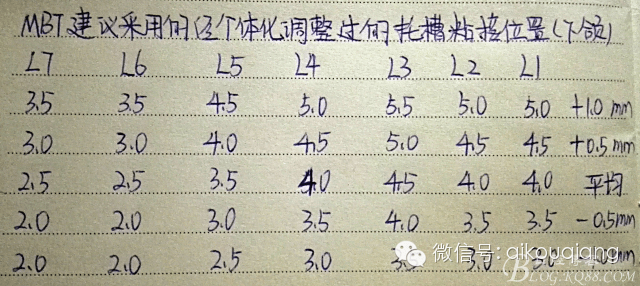 MBT建议采用的经个体化调整过的托槽粘接位置(下颌)
L7 L6 L5 L4 L3 L2 L1
3.5 3.5 4.5 5.0 5.5 5.0 5.0 +1.0mm
3.0 3.0 4.0 4.5 5.0 4.5 4.5 +0.5mm
2.5 2.5 3.5 4.0 4.5 4.0 4.0 平均
2.0 2.0 3.0 3.5 4.0 3.5 3.5 -0.5mm
2.0 2.0 2.5 3.0 3.0
微信号: qikouqiang
BLOG.KQ88.COM